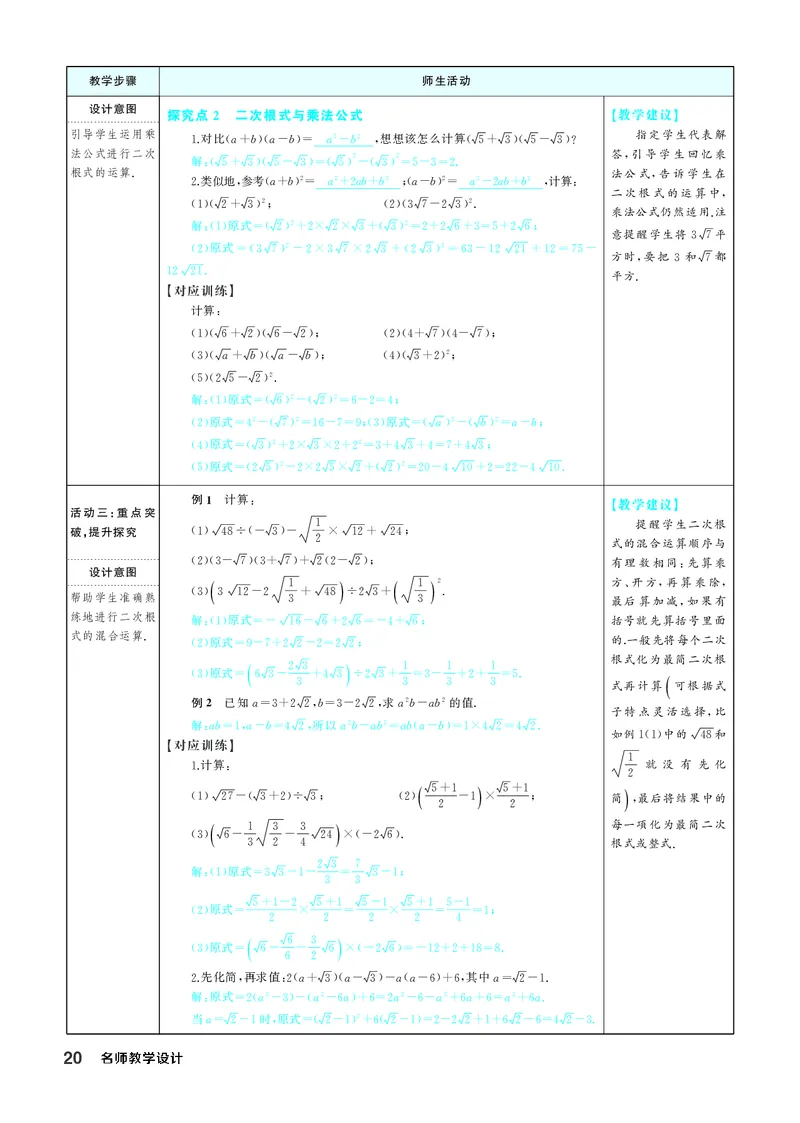 教学步骤 师生活动
设计意图
引导学生运用乘
法公式进行二次
根式的运算.
探究点 2 二次根式与乘法公式
1.对比(a+b)(a-b)= a²-b² ,想想该怎么计算(√5+√3)(√5-√3)?
解:(√5+√3)(√5-√3)=(√5)²-(√3)²=5-3=2.
2.类似地,参考(a+b)²= a²+2ab+b² ;(a-b)²= a²-2ab+b² ,计算:
(1)(√2+√3)²; (2)(3√7-2√3)².
解:(1)原式=(√2)²+2×√2×√3+(√3)²=2+2√6+3=5+2√6;
(2)原式=(3√7)²-2×3√7×2√3+(2√3)²=63-12√21+12=75-
12√21.
【对应训练】
计算:
(1)(√6+√2)(√6-√2); (2)(4+√7)(4-√7);
(3)(√a+√b)(√a-√b); (4)(√3+2)²;
(5)(2√5-√2)².
解:(1)原式=(√6)²-(√2)²=6-2=4;
(2)原式=4²-(√7)²=16-7=9;(3)原式=(√a)²-(√b)²=a-b;
(4)原式=(√3)²+2×√3×2+2²=3+4√3+4=7+4√3;
(5)原式=(2√5)²-2×2√5×√2+(√2)²=20-4√10+2=22-4√10.
【教学建议】
指定学生代表解
答,引导学生回忆乘
法公式,告诉学生在
二次根式的运算中,
乘法公式仍然适用.注
意提醒学生将3√7平
方时,要把3和√7都
平方.
活动三:重点突
破,提升探究
设计意图
帮助学生准确熟
练地进行二次根
式的混合运算.
例1 计算:
(1)√48÷(-√3)-√(1/2)×√12+√24;
(2)(3-√7)(3+√7)+√2(2-√2);
(3)(3√12-2√(1/3)+√48)÷2√3+(√(1/3))².
解:(1)原式=-√16-√6+2√6=-4+√6;
(2)原式=9-7+2√2-2=2√2;
(3)原式=(6√3-2√3/3+4√3)÷2√3+1/3=3-1/3+2+1/3=5.
例2 已知a=3+2√2,b=3-2√2,求a²b-ab²的值.
解:ab=1,a-b=4√2,所以a²b-ab²=ab(a-b)=1×4√2=4√2.
【对应训练】
1.计算:
(1)√27-(√3+2)÷√3; (2)((√5+1)/2-1)×(√5+1)/2;
(3)(√6-1/3√(3/2)-3/4√24)×(-2√6).
解:(1)原式=3√3-1-2√3/3=7/3√3-1;
(2)原式=(√5+1-2)/2×(√5+1)/2=(√5-1)/2×(√5+1)/2=(5-1)/4=1;
(3)原式=(√6-√6/6-3/2√6)×(-2√6)=-12+2+18=8.
2.先化简,再求值:2(a+√3)(a-√3)-a(a-6)+6,其中a=√2-1.
解:原式=2(a²-3)-(a²-6a)+6=2a²-6-a²+6a+6=a²+6a.
当a=√2-1时,原式=(√2-1)²+6(√2-1)=2-2√2+1+6√2-6=4√2-3.
【教学建议】
提醒学生二次根
式的混合运算顺序与
有理数相同:先算乘
方、开方,再算乘除,
最后算加减,如果有
括号就先算括号里面
的.一般先将每个二次
根式化为最简二次根
式再计算(可根据式
子特点灵活选择,比
如例1(1)中的√48和
√(1/2)就没有先化
简),最后将结果中的
每一项化为最简二次
根式或整式.
20 名师教学设计